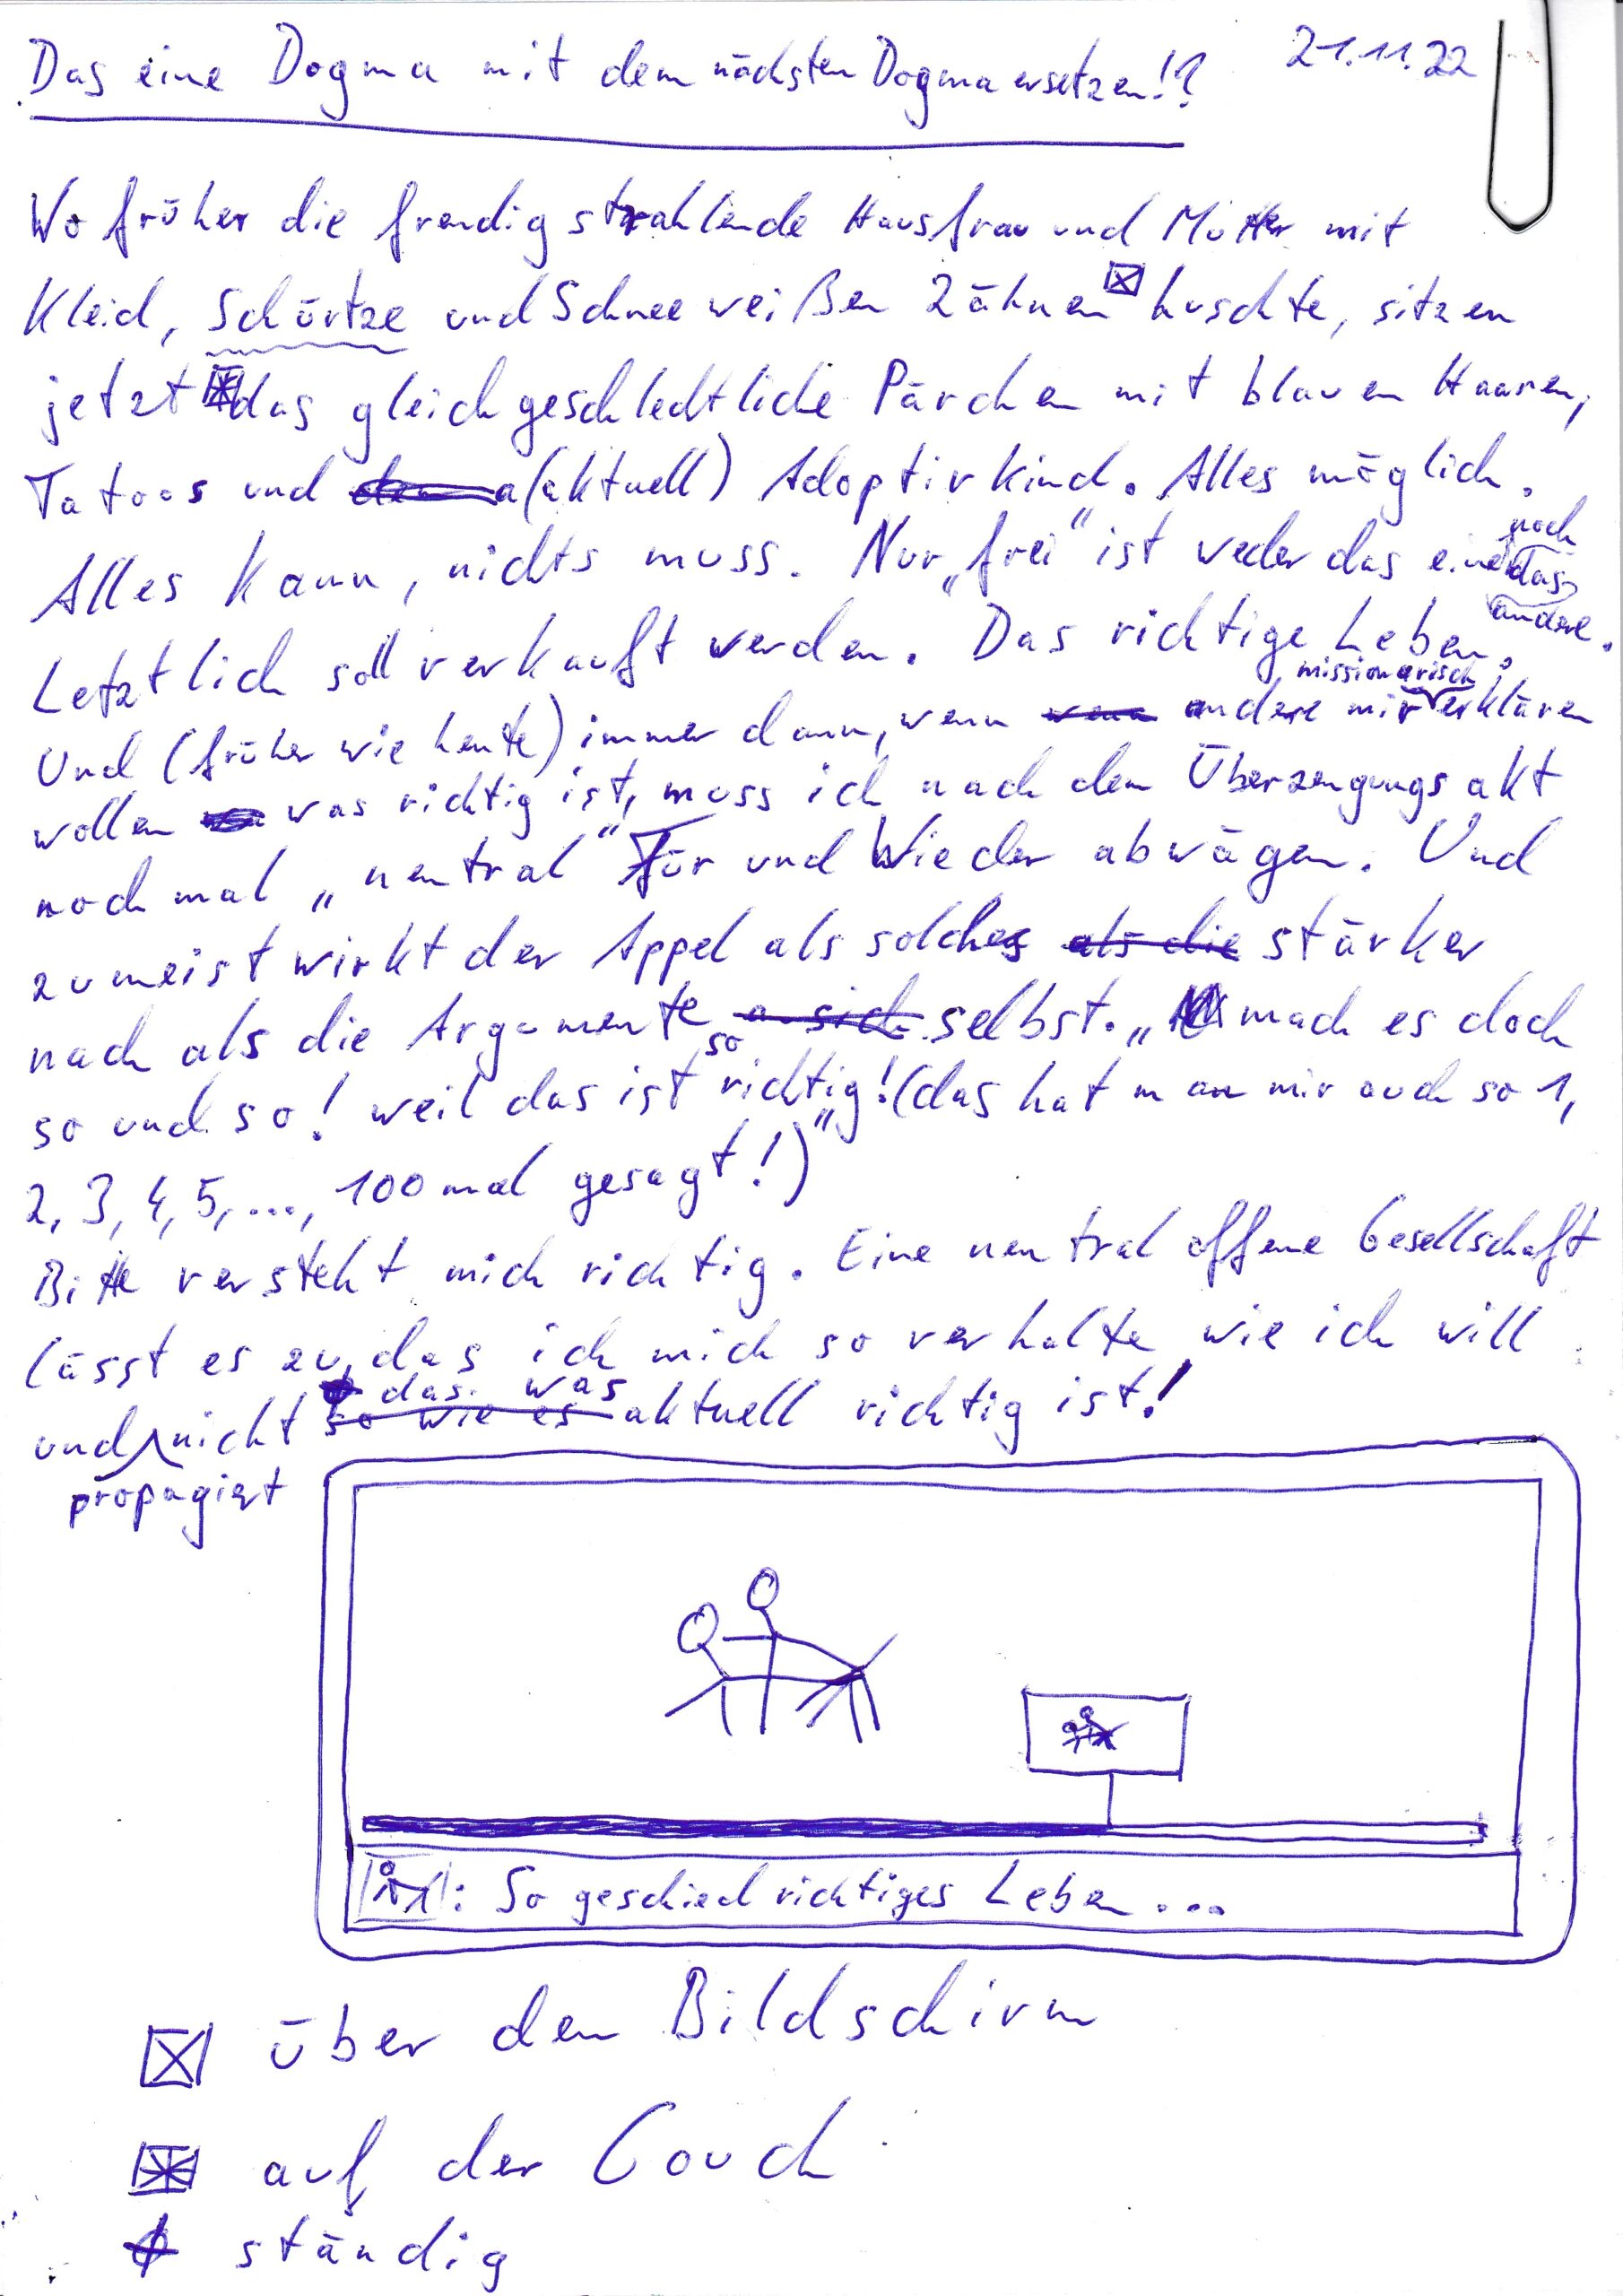 Das eine Dogma mit dem nächsten Dogma ersetzen!? 21.11.22
Wo früher die freudig strahlende Hausfrau und Mutter mit
Kleid, Schürtze und Schneeweißen Zähnen huschte, sitzen
jetzt das gleichgeschlechtliche Pärchen mit blauen Haaren,
Tatoos und (aktuell) Adoptivkind. Alles möglich.
Alles kann, nichts muss. Nur „frei“ ist weder das eine noch das andere.
Letztlich soll verkauft werden. Das richtige Leben.
Und (früher wie heute) immer dann, wenn andere mir missionarisch erklären
wollen was richtig ist, muss ich nach dem Überzeugungsakt
nochmal „neutral“ Für und Wieder abwägen. Und
zumeist wirkt der Appel als solches stärker
nach als die Argumente selbst. „mach es doch
so und so! weil das ist so richtig!“ (das hat man mir auch so 1,
2, 3, 4, 5, ..., 100 mal gesagt!)
Bitte versteht mich richtig. Eine neutral offene Gesellschaft
lässt es zu, das ich mich so verhalte wie ich will
und propagiert nicht das was aktuell richtig ist!
: So geschied richtiges Leben ...
über den Bildschirm
auf der Couch
ständig